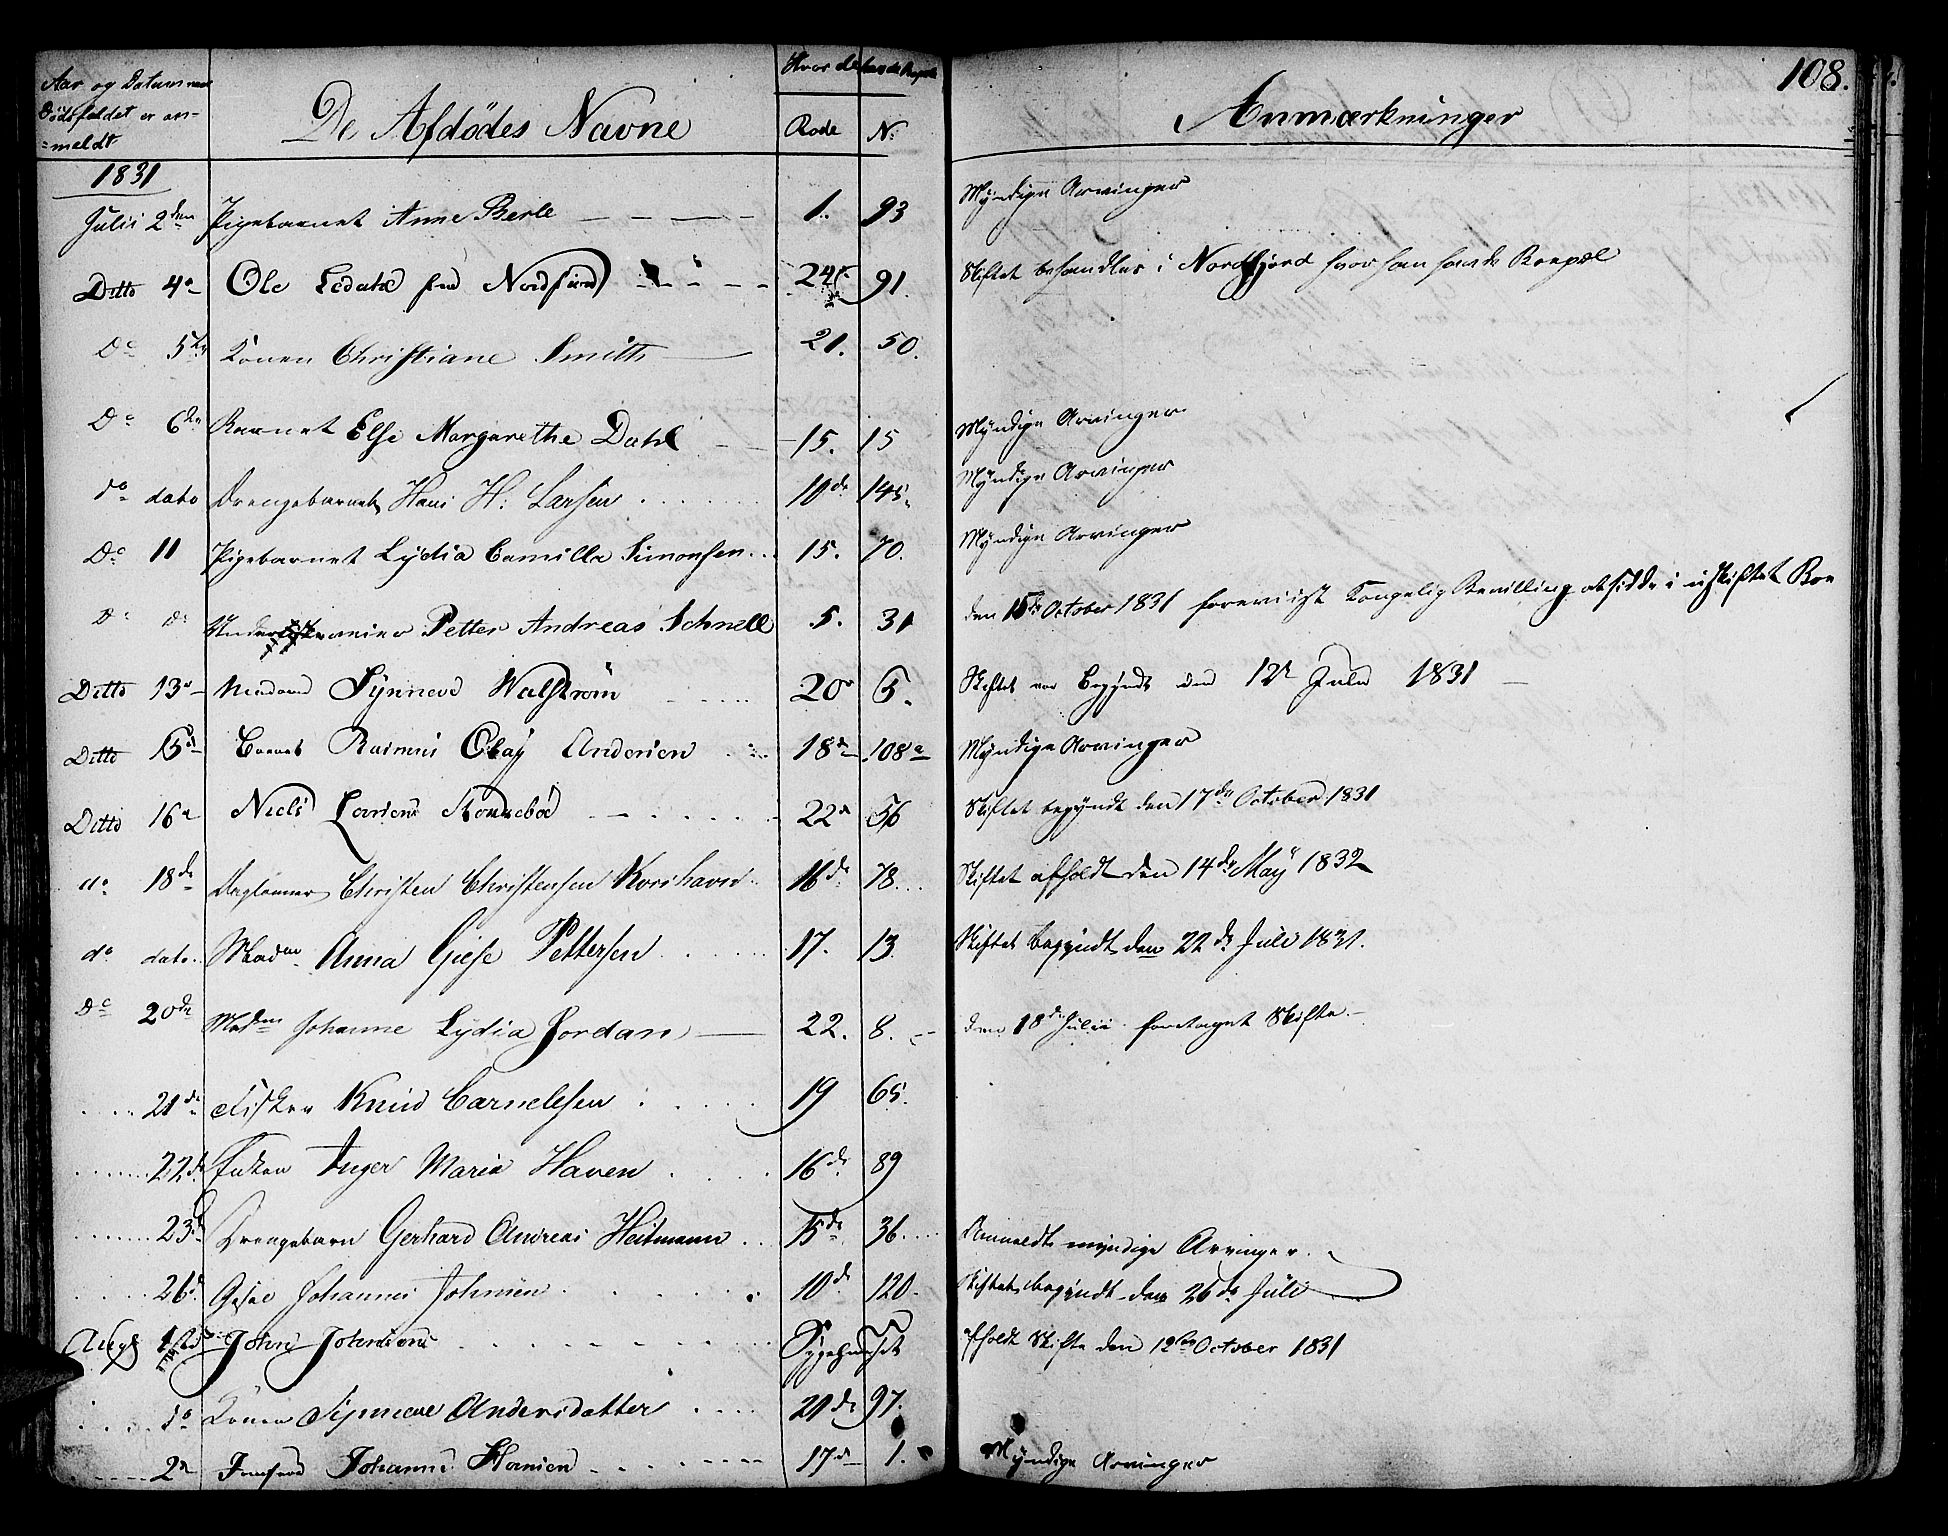 108.
Aar og Datum naar
Dödsfaldet er an-
=meldt
De Afdødes Navne
Hvor de havde Bopæl
Rode N:
Anmærkninger
1831
Julii 2den Pigebarnet Anne Berle 1. 93 Myndige Arvinger
Ditto 4de Ole Ledahl fra Nordfiord 24de 91. Skiftet behandles i Nordfjord hvor han havde Boepæl
Do 5te Konen Christiane Smith 21. 50.
Do 6te Barnet Else Margarethe Dahl 15. 15 Myndige Arvinger
do dato Drengebarnet Hans H: Larsen 10de 145. Myndige Arvinger
Do 11 Pigebarnet Lydia Camilla Simonsen 15. 70. Myndige Arvinger
Do do Petter Andreas Schnell 5. 31 den 15de October 1831 foreviist Kongelig Bevilling at sidde i uskiftet Boe
Ditto 13de Madame Synneve Walstrøm 20de 5. Skiftet var Begyndt den 12te Julii 1831
Ditto 15de Barnet Rasmus Olay Andersen 18de 108a Myndige Arvinger
Ditto 16de Niels Larsen Konnebøe 22de 56 Skiftet begyndt den 17de October 1831
do 18de Dagleiner Christen Christensen Korshavn 16de 78. Skiftet afholdt den 14de May 1832
do dato. Madme Anna Giese Pettersen 17. 13. Skiftet begyndt den 22de Juli 1831.
Do 20de Madme Johanne Lydia Jordan 22. 8. den 18de Julii foretaget Skifte.
21de Fisker Knud Carnelesen 19 65.
22de Enken Inger Maria Haven 16de 89
23de Drengebarn Gerhard Andreas Heitmann 15de 36. Anmeldt myndige Arvinger.
26de Johannes Johnsen 10de 120. Skiftet begyndt den 26de Juli
Augt 1ste John Johnsen Sygehuset afholdt Skifte den 12te October 1831
do Konen Synneve Andersdatter 21de 97.
2de Jomfrue Johanne Hansen 17de 1. Myndige Arvinger